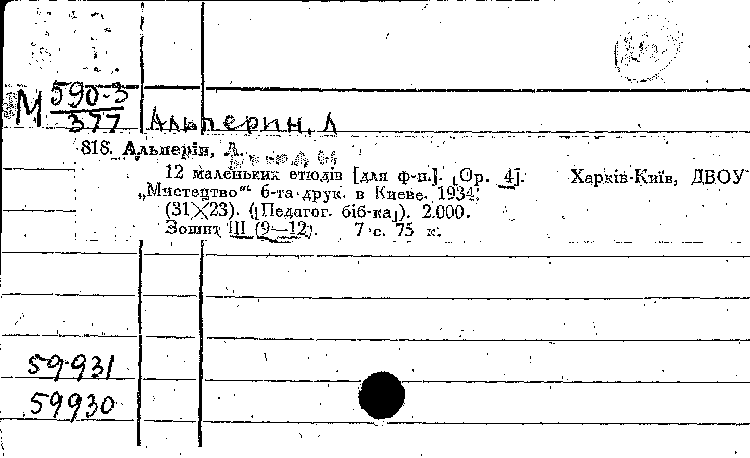 М 590-3
377
Альперин, Л
818. Альперін, Л.
12 маленьких етюдів [для ф-п.]. [Ор. 4]. Харків-Київ, ДВОУ
„Мистецтво“ 6-та друк. в Києве. 1934.
(31X23). ([Педагог. біб-ка]). 2.000.
Зошит III (9—12). 7 с. 75 к.
59931
59930